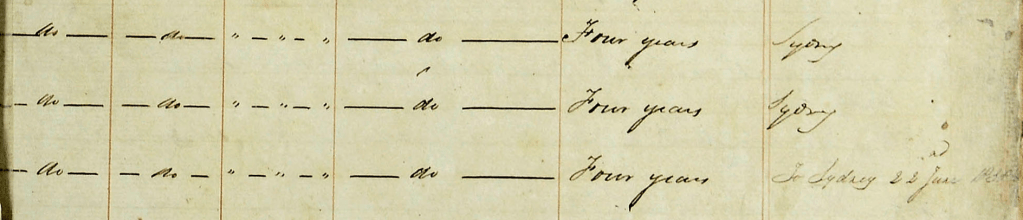 — do — — do — " — " — " — do — Four years Sydney
— do — — do — " — " — " — do — Four years Sydney
— do — — do — " — " — " — do — Four years To Sydney 22nd June